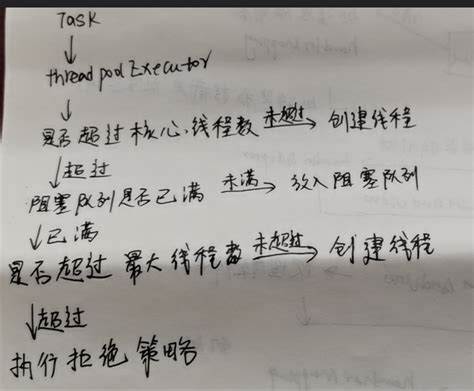 Task
threadpoolExecutor
是否超过核心线程数 未超过 创建线程
超过
阻塞队列是否已满 未满 放入阻塞队列
已满
是否超过最大线程数 未超过 创建线程
超过
执行拒绝策略